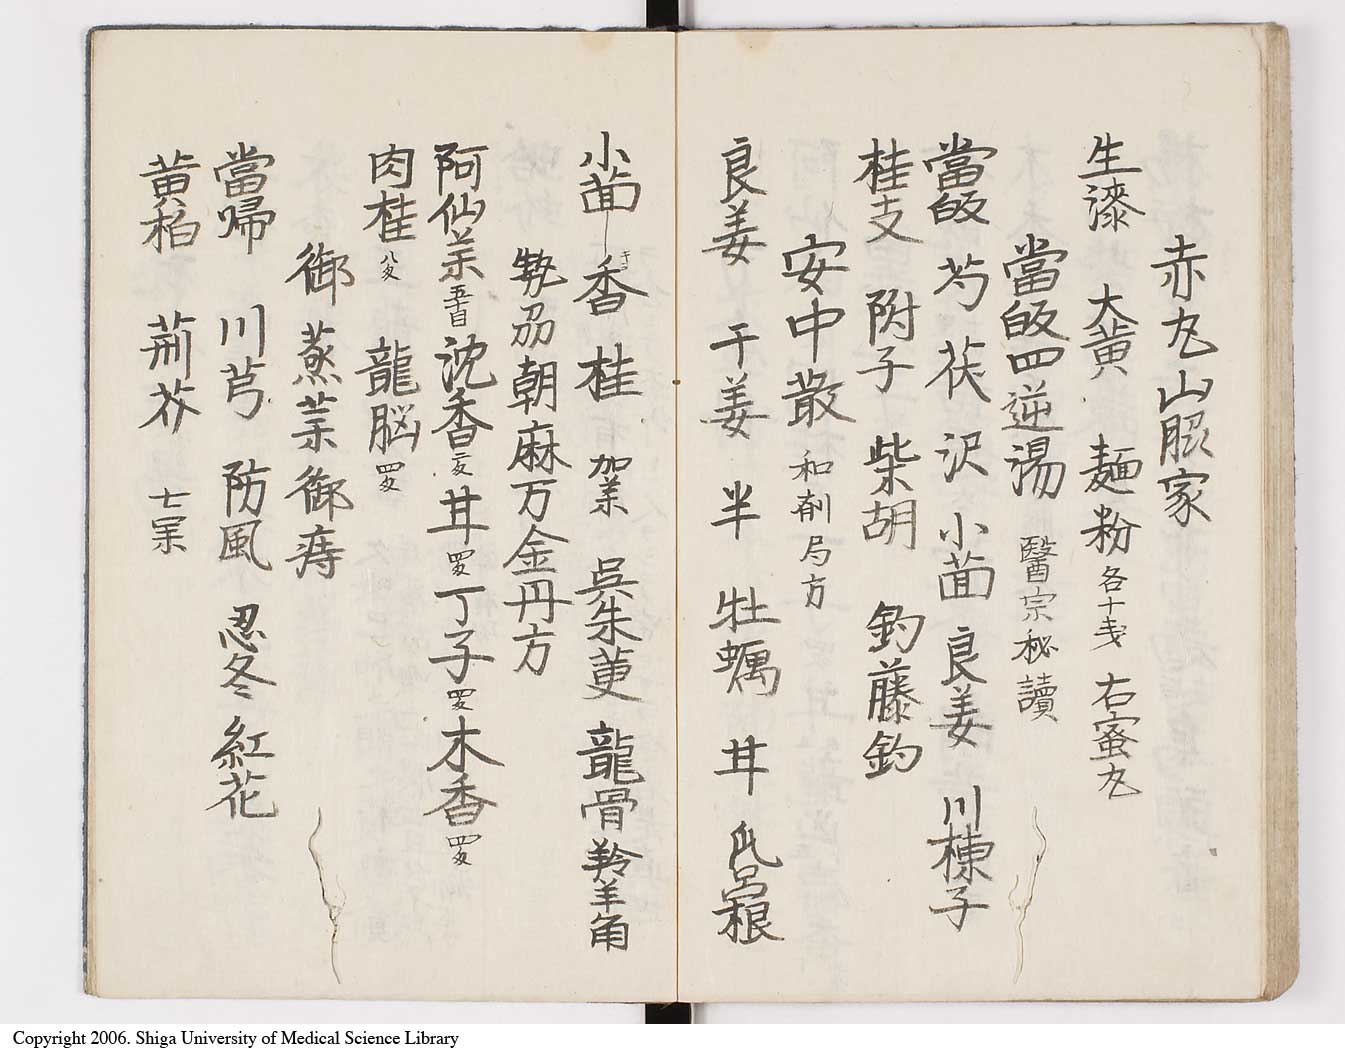 赤丸山脇家
生漆 大黄 麺粉各十戔 右蜜丸
當皈四逆湯 醫宗秘讀
當皈 芍 茯 沢 小茴 良姜 川楝子
桂支 附子 柴胡 釣藤釣
安中散 和剤局方
良姜 干姜 半 牡蠣 甘
小茴 香 キヨ 桂 加羕 呉朱茰 龍骨 羚羊角
朝麻万金丹方
阿仙羕 五百目 沈香 甘 四匁 丁子 四匁 木香 四匁
肉桂 八匁 龍脳 四匁
御蒸羕御痔
當帰 川芎 防風 忍冬 紅花
黄柏 荊芥 七
Copyright 2006. Shiga University of Medical Science Library